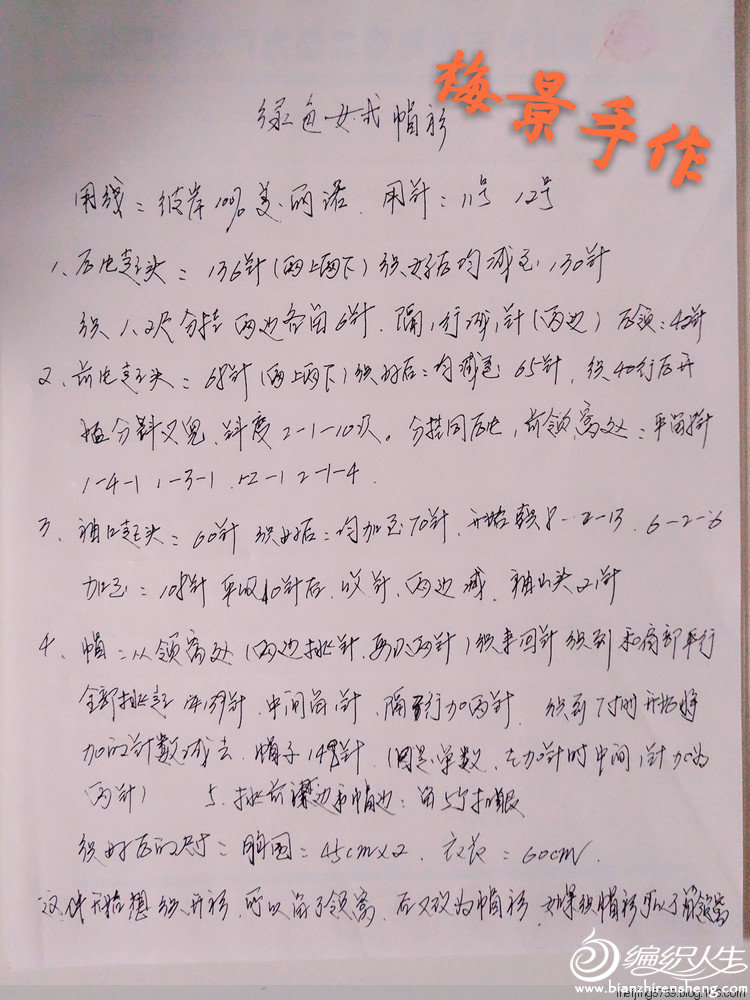 梅景手作
绿色女式帽衫
用线：彼岸100%美丽诺. 用针：11号 12号
1、后片起头：136针(两上两下)织好后均减至130针
织1.2尺分挂 两边各留6针. 隔1行减1针(两边) 后领：42针
2、前片起头：68针(两上两下)织好后：均减至65针, 织40行后开
始分斜叉兜, 斜度2-1-10次。分挂同后片, 前领窝处：平留
1-4-1 1-3-1 2-1-4
3、袖口起头：60针 织好后：均加至70针. 开始 8-2-13 6-2-6
加至：108针 平收10针后, 收针, 两边减. 袖山头21针
4、帽：从领窝处(两边挑针, 两针)织来回针 织到和肩部平行
全部挑起 139针, 中间留1针, 隔 行加两针. 织到 开始将
加的针数减去. 帽子149针. (因是单数, 在加针时中间1针加为
两针) 5、挑前襟边和帽边：留5个扣眼
织好后的尺寸：胸围：45cm×2. 衣长：60cm.
这件开始想织开衫, 可以留了领窝. 后又改为帽衫, 如果织帽衫可以了 领窝
编织人生
www.bianzhirensheng.com
meijing5759.blog.163.com